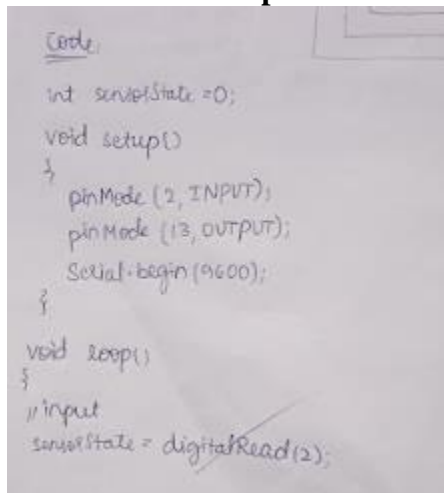 Code:
int sensorState =0;
void setup()
{
pinMode (2, INPUT);
pinMode (13, OUTPUT);
Serial.begin(9600);
}
void loop()
{
// input
sensorState = digitalRead(2);